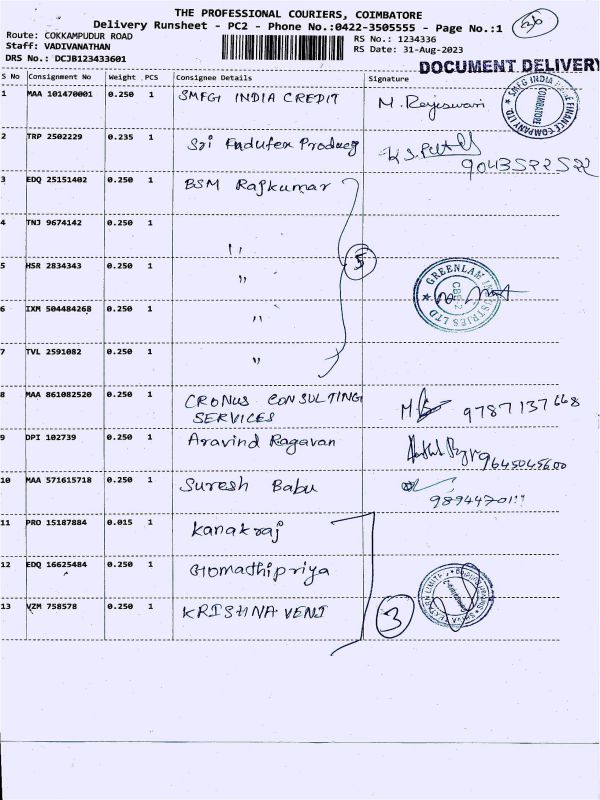 THE PROFESSIONAL COURIERS, COIMBATORE
Delivery Runsheet - PC2 - Phone No.:0422-3505555 - Page No.:1
36
Route: COKKAMPUDUR ROAD
RS No.: 1234336
Staff: VADIVANATHAN
RS Date: 31-Aug-2023
DRS No.: DCJB123433601
DOCUMENT DELIVERY
S No Consignment No Weight PCS Consignee Details Signature
1 MAA 101470001 0.250 1 SMFG INDIA CREDIT M. Rajeswari
SMFG INDIA FINANCE COMPANY LTD. COIMBATORE
2 TRP 2502229 0.235 1 Sri Fadufex Produceg
9043522522
3 EDQ 25151402 0.250 1 BSM Rajkumar
4 TNJ 9674142 0.250 1 "
5 HSR 2834343 0.250 1 " 5
GREENLAM INDUSTRIES LTD CBE-2
6 IXM 504484268 0.250 1 "
7 TVL 2591082 0.250 1 "
8 MAA 861082520 0.250 1 CRONUS CONSULTING
SERVICES 9787137668
9 DPI 102739 0.250 1 Aravind Ragavan 9645045600
10 MAA 571615718 0.250 1 Suresh Babu
11 PRO 15187884 0.015 1 Kanakraj
12 EDQ 16625484 0.250 1 Gomathipriya
13 VZM 758578 0.250 1 KRISHNAVENI 3